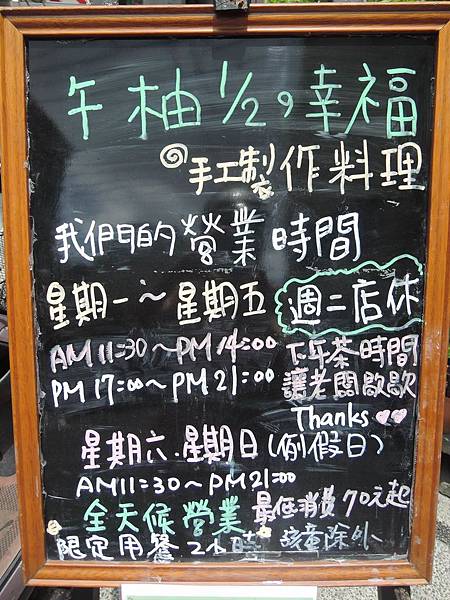 午柚1/2，幸福
@手工製作料理
我們的營業時間
星期一～星期五 週二店休
AM11:30～PM14:00 下午茶時間
PM17:00～PM21:00 讓老闆歇歇
Thanks
星期六.星期日(例假日)
AM11:30～PM21:00
全天候營業 最低消費70元起
限定用餐2小時 孩童除外